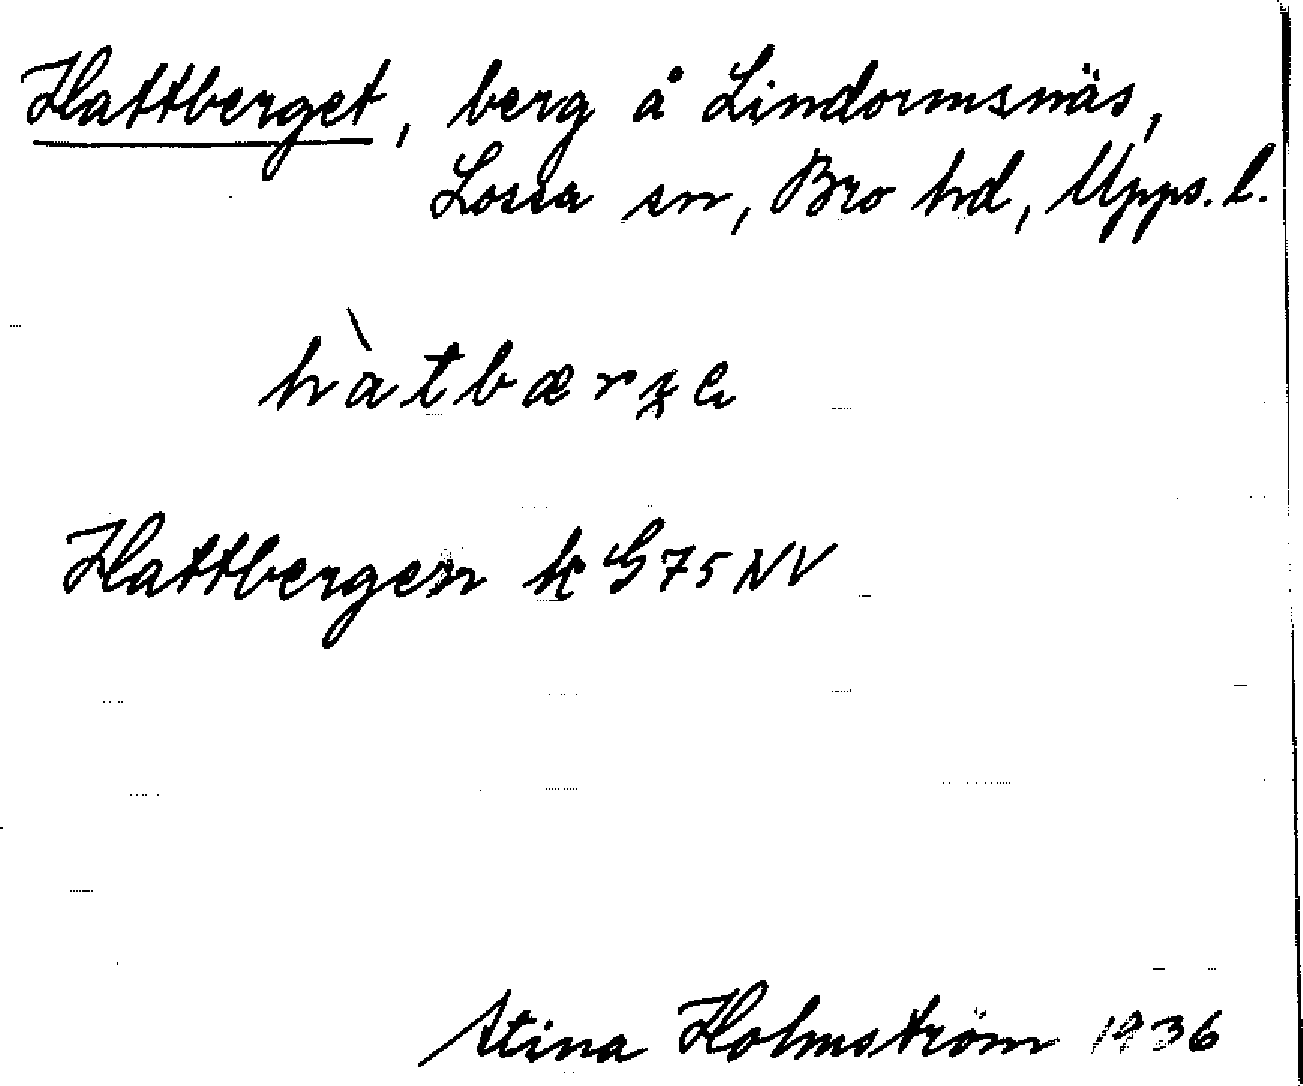 Hattberget, berg å Lindormsnäs,
Lossa sn, Bro hd, Upps. l.
hàtbærge
Hattbergen k G 75 NV
Stina Holmström 1936